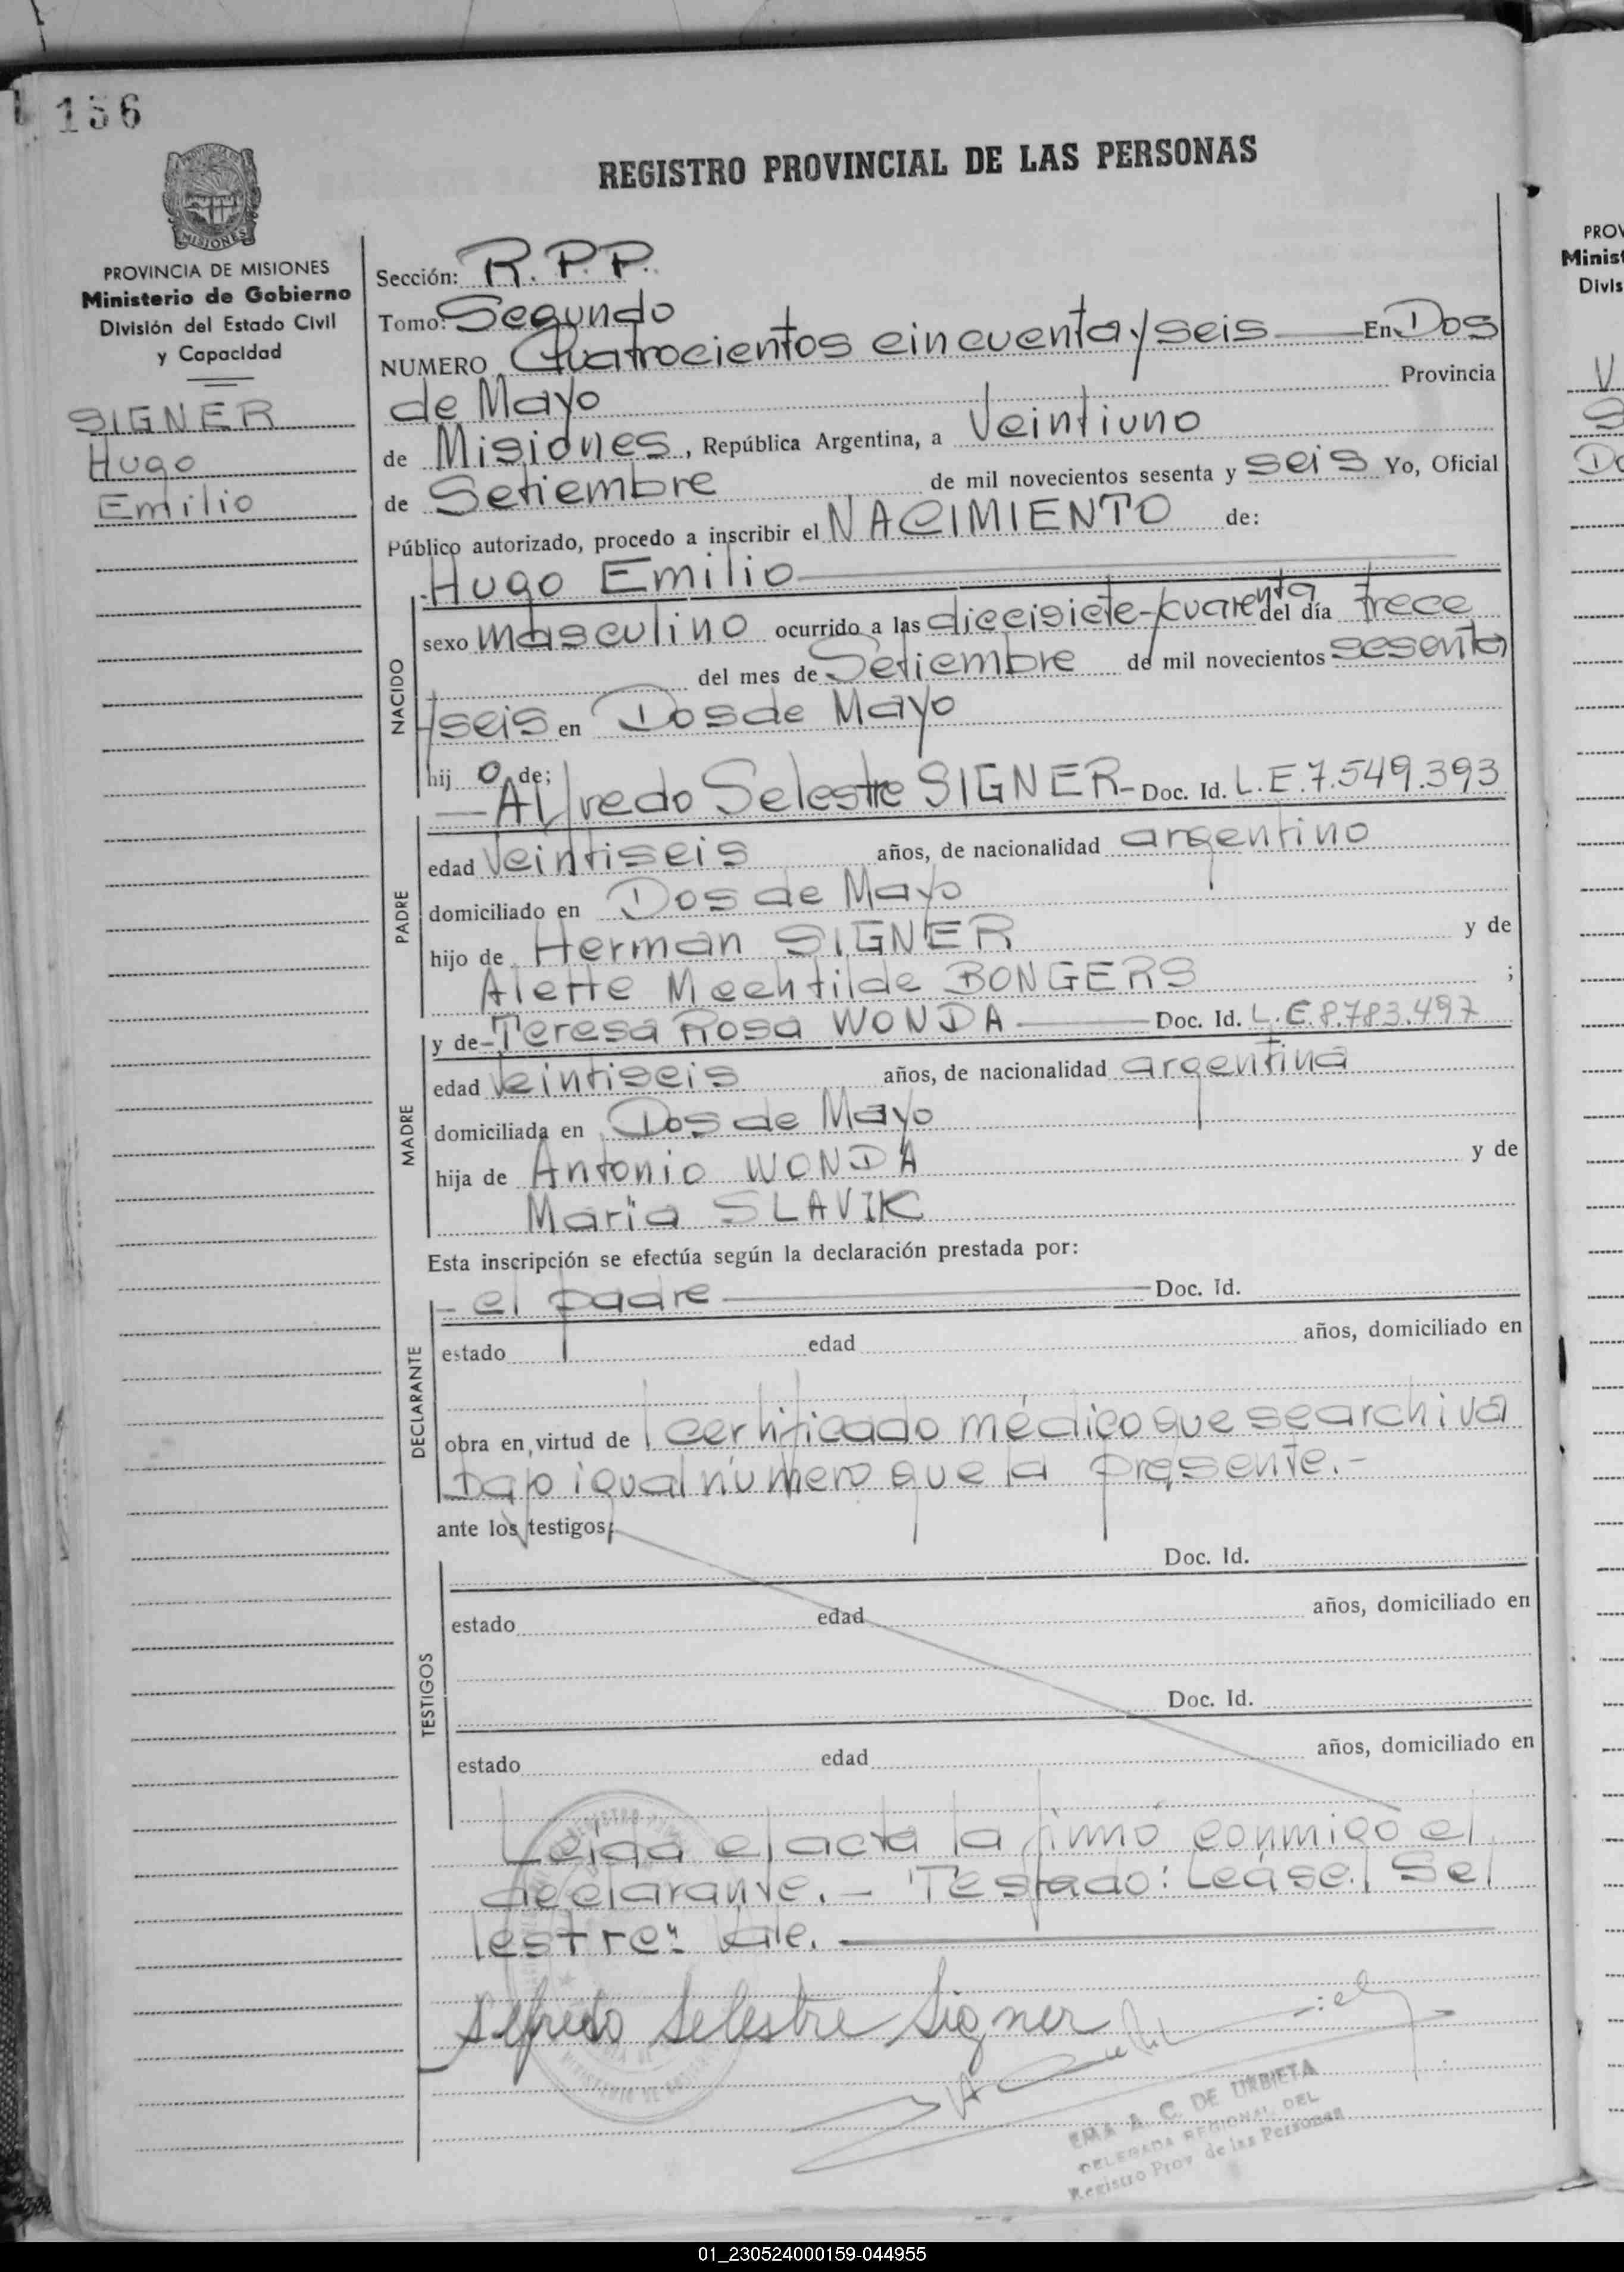 156
REGISTRO PROVINCIAL DE LAS PERSONAS
MISIONES
PROVINCIA DE MISIONES
Ministerio de Gobierno
División del Estado Civil
y Capacidad
SIGNER
Hugo
Emilio
Sección: R.P.P.
Tomo: Segundo
NUMERO Cuatrocientos cincuenta y seis En Dos
de Mayo Provincia
de Misiones, República Argentina, a Veintiuno
de Setiembre de mil novecientos sesenta y seis Yo, Oficial
Público autorizado, procedo a inscribir el NACIMIENTO de:
Hugo Emilio
NACIDO
sexo masculino ocurrido a las diecisiete y cuarenta del día trece
del mes de Setiembre de mil novecientos sesenta
y seis en Dos de Mayo
hijo de;
PADRE
Alfredo Selestre SIGNER - Doc. Id. L.E.7.549.393
edad veintiseis años, de nacionalidad argentino
domiciliado en Dos de Mayo
hijo de Herman SIGNER y de
Alette Mechtilde BONGERS ;
MADRE
y de Teresa Rosa WONDA Doc. Id. L.E.8.783.497
edad veintiseis años, de nacionalidad argentina
domiciliada en Dos de Mayo
hija de Antonio WONDA y de
Maria SLAVIK
Esta inscripción se efectúa según la declaración prestada por:
DECLARANTE
- el padre Doc. Id.
estado edad años, domiciliado en
obra en virtud de l certificado médico que se archiva
bajo igual número que la presente.-
ante los testigos;
TESTIGOS
Doc. Id.
estado edad años, domiciliado en
Doc. Id.
estado edad años, domiciliado en
Leida el acta la firmó conmigo el
declarante. - Testado: Leáse: Se
lestre" Vale.
Alfredo Selestre Signer
EMA A. C. DE URBIETA
DELEGADA REGIONAL DEL
Registro Prov de las Personas
PROV
Minist
Divis
01_230524000159-044955